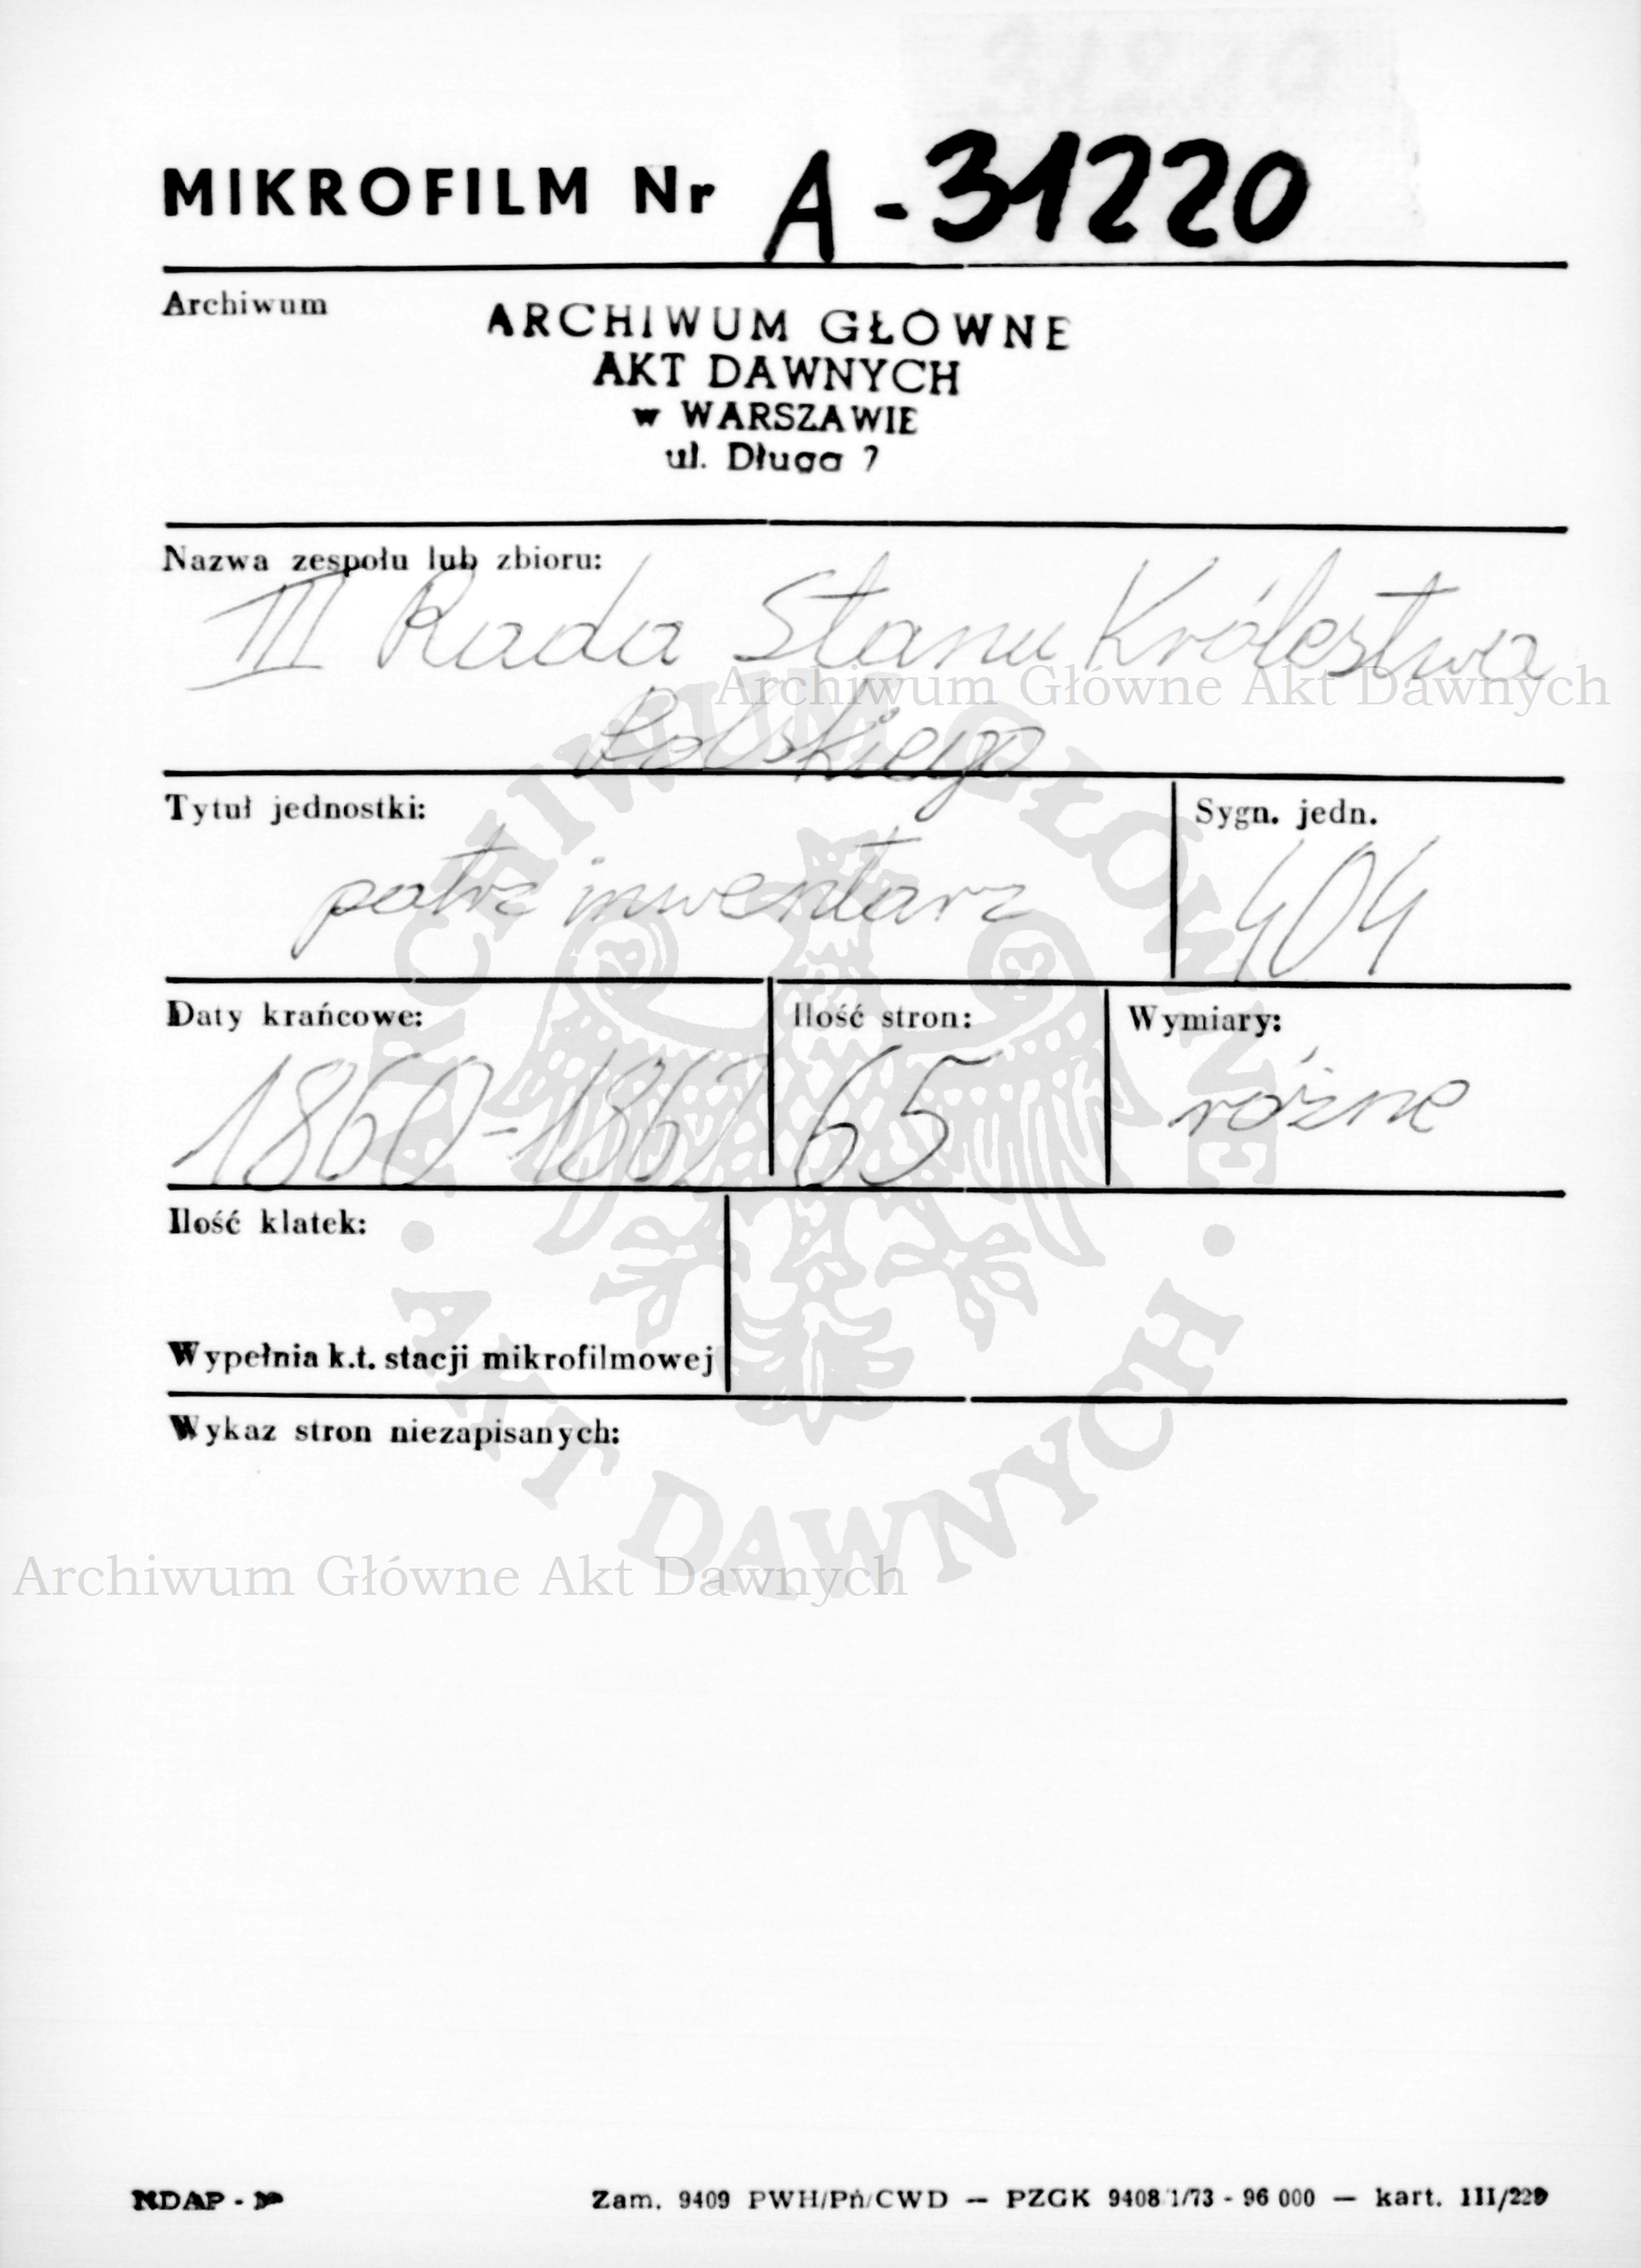 MIKROFILM Nr A-31220
Archiwum
ARCHIWUM GŁOWNE
AKT DAWNYCH
w WARSZAWIE
ul. Długa 7
Nazwa zespołu lub zbioru:
III Rada Stanu Królestwa
Polskiego
Archiwum Główne Akt Dawnych
Tytuł jednostki:
patrz inwentarz
Sygn. jedn.
404
Daty krańcowe:
1860-1862
Ilość stron:
65
Wymiary:
różne
Ilość klatek:
Wypełnia k.t. stacji mikrofilmowej
Wykaz stron niezapisanych:
ARCHIWUM GŁÓWNE
AKT DAWNYCH
Archiwum Główne Akt Dawnych
NDAP -
Zam. 9409 PWH/Pń/CWD — PZGK 9408 1/73 - 96 000 — kart. III/229